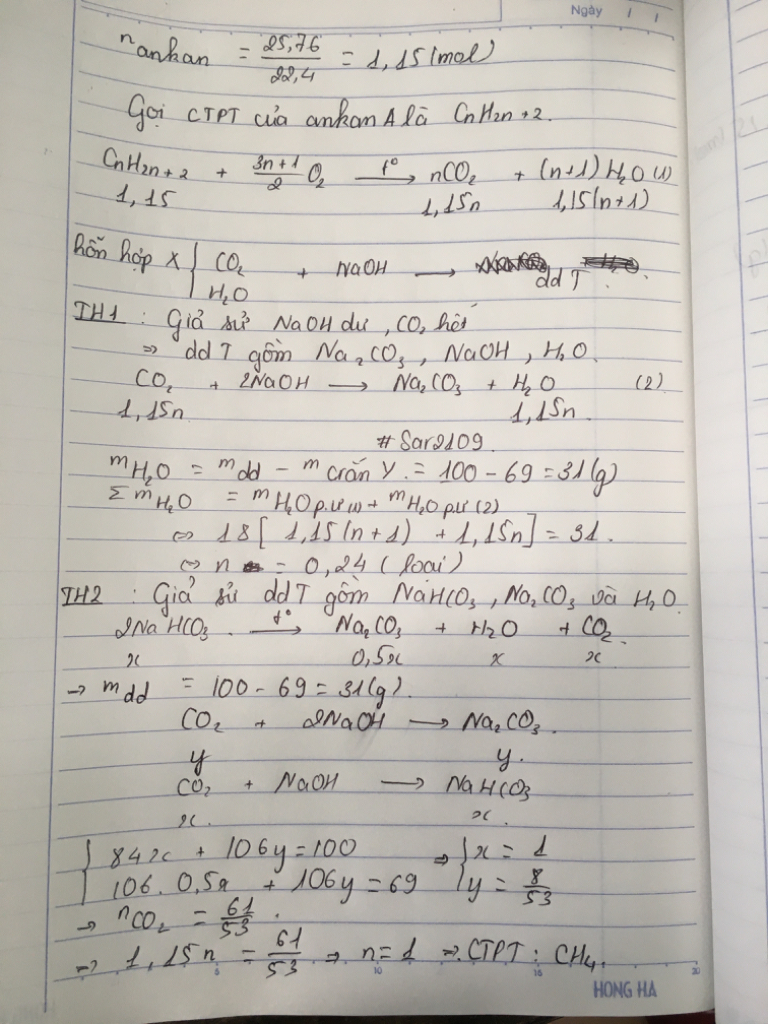 Ngày / /
n ankan = 25,76/22,4 = 1,15 (mol)
Gọi CTPT của ankan A là CnH2n+2.
CnH2n+2 + 3n+1/2 O2 —t°→ nCO2 + (n+1) H2O (1)
1,15 1,15n 1,15(n+1)
hỗn hợp X { CO2 + NaOH → dd T.
H2O
TH1 : Giả sử NaOH dư, CO2 hết
⇒ dd T gồm Na2CO3, NaOH, H2O.
CO2 + 2NaOH → Na2CO3 + H2O (2)
1,15n 1,15n.
#Sar2109.
mH2O = mdd - m crắn Y. = 100 - 69 = 31(g)
Σ mH2O = mH2O p.ư (1) + mH2O p.ư (2)
⇔ 18[ 1,15(n+1) + 1,15n] = 31.
⇔ n = 0,24 (loại)
TH2 : Giả sử dd T gồm NaHCO3, Na2CO3 và H2O.
2NaHCO3 —t°→ Na2CO3 + H2O + CO2.
x 0,5x x x
→ mdd = 100 - 69 = 31(g).
CO2 + 2NaOH → Na2CO3.
y y.
CO2 + NaOH → NaHCO3
x. x.
{ 84x + 106y = 100 ⇒ { x = 1
106. 0,5x + 106y = 69 y = 8/53
→ nCO2 = 61/53.
⇒ 1,15n = 61/53 ⇒ n = 1 ⇒ CTPT : CH4.
5 10 15 20
HONG HA